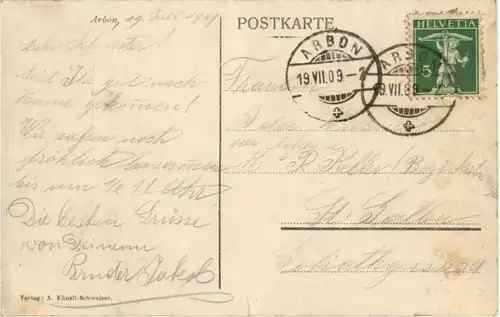 Arbon, 19 Juli 1909
POSTKARTE
HELVETIA
5
ARBON
19.VII.09-7
ARBON
19.VII.09-
Liebe Schwester!
Seid Ihr gut nach
Hause gekommen!
Wir sassen noch
fröhlich beisammen
bis um ½ 11 Uhr
Die besten Grüsse
von Deinem
Bruder Jakob
Frau
Keller
St. Gallen
Verlag: A. Künzli-Schweizer.